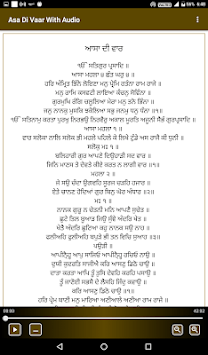 Asa Di Vaar With Audio
ਆਸਾ ਦੀ ਵਾਰ
ੴ ਸਤਿਗੁਰ ਪ੍ਰਸਾਦਿ ॥
ਆਸਾ ਮਹਲਾ ੪ ਛੰਤ ਘਰੁ ੪ ॥
ਹਰਿ ਅੰਮ੍ਰਿਤ ਭਿੰਨੇ ਲੋਇਣਾ ਮਨੁ ਪ੍ਰੇਮਿ ਰਤੰਨਾ ਰਾਮ ਰਾਜੇ ॥
ਮਨੁ ਰਾਮਿ ਕਸਵਟੀ ਲਾਇਆ ਕੰਚਨੁ ਸੋਵਿੰਨਾ ॥
ਗੁਰਮੁਖਿ ਰੰਗਿ ਚਲੂਲਿਆ ਮੇਰਾ ਮਨੁ ਤਨੋ ਭਿੰਨਾ ॥
ੴ ਸਤਿਨਾਮੁ ਕਰਤਾ ਪੁਰਖੁ ਨਿਰਭਉ ਨਿਰਵੈਰੁ ਅਕਾਲ ਮੂਰਤਿ ਅਜੂਨੀ ਸੈਭੰ ਗੁਰਪ੍ਰਸਾਦਿ ॥
ਆਸਾ ਮਹਲਾ ੧ ॥
ਵਾਰ ਸਲੋਕਾ ਨਾਲਿ ਸਲੋਕ ਭੀ ਮਹਲੇ ਪਹਿਲੇ ਕੇ ਲਿਖੇ ਟੁੰਡੇ ਅਸ ਰਾਜੈ ਕੀ ਧੁਨੀ ॥
ਸਲੋਕੁ ਮਃ ੧ ॥
ਬਲਿਹਾਰੀ ਗੁਰ ਆਪਣੇ ਦਿਉਹਾੜੀ ਸਦ ਵਾਰ ॥
ਜਿਨਿ ਮਾਣਸ ਤੇ ਦੇਵਤੇ ਕੀਏ ਕਰਤ ਨ ਲਾਗੀ ਵਾਰ ॥੧॥
ਮਹਲਾ ੨ ॥
ਜੇ ਸਉ ਚੰਦਾ ਉਗਵਹਿ ਸੂਰਜ ਚੜਹਿ ਹਜਾਰ ॥
ਏਤੇ ਚਾਨਣ ਹੋਦਿਆਂ ਗੁਰ ਬਿਨੁ ਘੋਰ ਅੰਧਾਰ ॥੨॥
ਮਃ ੧ ॥
ਨਾਨਕ ਗੁਰੂ ਨ ਚੇਤਨੀ ਮਨਿ ਆਪਣੈ ਸੁਚੇਤ ॥
ਛੁਟੇ ਤਿਲ ਬੂਆੜ ਜਿਉ ਸੁੰਞੇ ਅੰਦਰਿ ਖੇਤ ॥
ਖੇਤੈ ਅੰਦਰਿ ਛੁਟਿਆ ਕਹੁ ਨਾਨਕ ਸਉ ਨਾਹ ॥
ਫਲੀਅਹਿ ਫੁਲੀਅਹਿ ਬਪੁੜੇ ਭੀ ਤਨ ਵਿਚਿ ਸੁਆਹ ॥੩॥
ਪਉੜੀ ॥
ਆਪੀਨੑੈ ਆਪੁ ਸਾਜਿਓ ਆਪੀਨੑੈ ਰਚਿਓ ਨਾਉ ॥
ਦੁਯੀ ਕੁਦਰਤਿ ਸਾਜੀਐ ਕਰਿ ਆਸਣੁ ਡਿਠੋ ਚਾਉ ॥
ਦਾਤਾ ਕਰਤਾ ਆਪਿ ਤੂੰ ਤੁਸਿ ਦੇਵਹਿ ਕਰਹਿ ਪਸਾਉ ॥
ਤੂੰ ਜਾਣੋਈ ਸਭਸੈ ਦੇ ਲੈਸਹਿ ਜਿੰਦੁ ਕਵਾਉ ॥
ਕਰਿ ਆਸਣੁ ਡਿਠੋ ਚਾਉ ॥੧॥
ਹਰਿ ਪ੍ਰੇਮ ਬਾਣੀ ਮਨੁ ਮਾਰਿਆ ਅਣੀਆਲੇ ਅਣੀਆ ਰਾਮ ਰਾਜੇ ॥